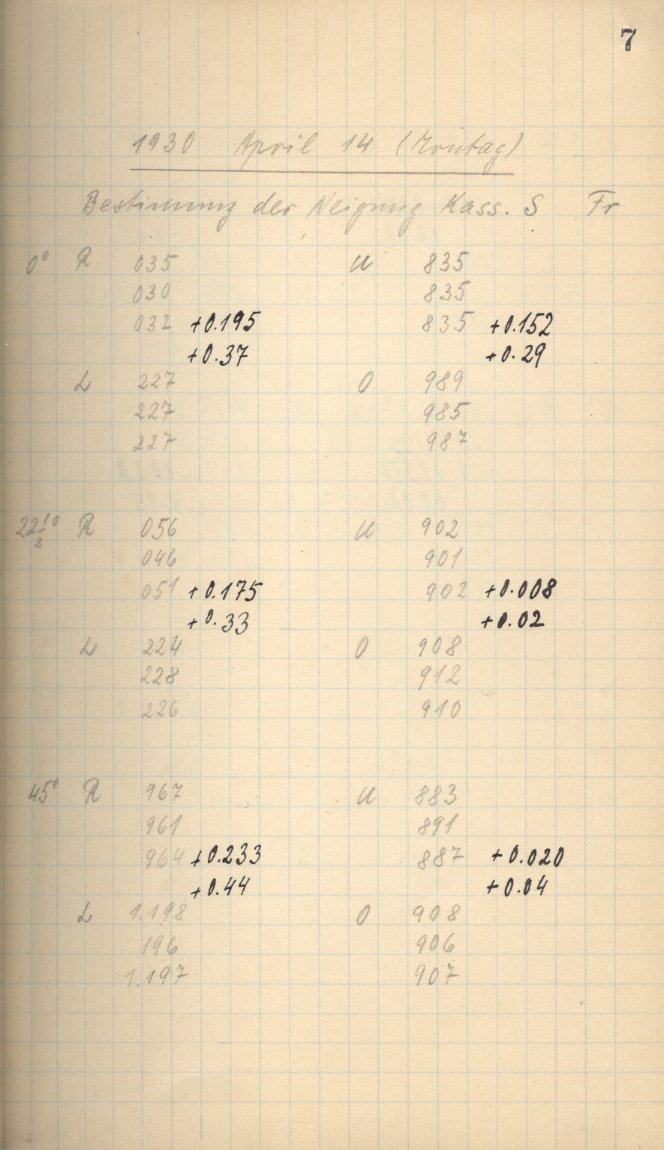 7
1930 April 14 (Montag)
Bestimmung der Neigung Kass. S Fr
0° R 035 U 835
030 835
032 +0.195 835 +0.152
+0.37 +0.29
L 227 O 989
227 985
227 987
22½° R 056 U 902
046 901
051 +0.175 902 +0.008
+0.33 +0.02
L 224 O 908
228 912
226 910
45° R 967 U 883
961 891
964 +0.233 887 +0.020
+0.44 +0.04
L 1.198 O 908
196 906
1.197 907